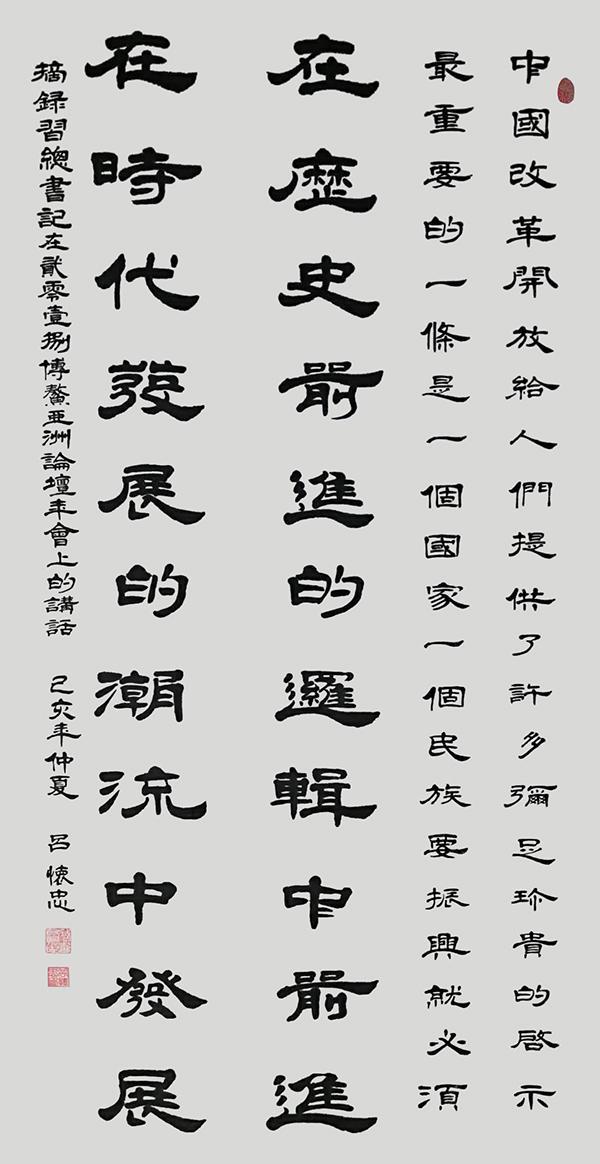 中國改革開放給人們提供了許多彌足珍貴的啓示
最重要的一條是一個國家一個民族要振興就必須
在歷史前進的邏輯中前進
在時代發展的潮流中發展
摘録習總書記在貳零壹捌博鰲亞洲論壇年會上的講話 己亥年仲夏 呂懷忠